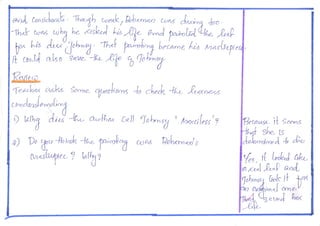 and consolate. Though weak, Behrman was daring too
That was why he risked his life and painted the leaf
for his dear Johnsy. That painting became his masterpiece
It could also save the life of Johnsy.
Review
Teacher asks some questions to check the learners
understanding
1) Why does the author call Johnsy "
2) Do you think the painting was Behrman's
masterpiece? Why?
Because it seems
that she is
determined to die
Yes, it looked like
a real leaf and
Johnsy took it for
an original one.
That saved her
life.